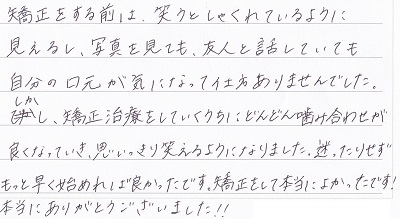 矯正をする前は、笑うとしゃくれているように
見えるし、写真を見ても、友人と話していても
自分の口元が気になって仕方ありませんでした。
しかし、矯正治療をしていくうちにどんどん噛み合わせが
良くなっていき、思いっきり笑えるようになりました。迷ったりせず
もっと早く始めれば良かったです。矯正をして本当によかったです!
本当にありがとうございました!!